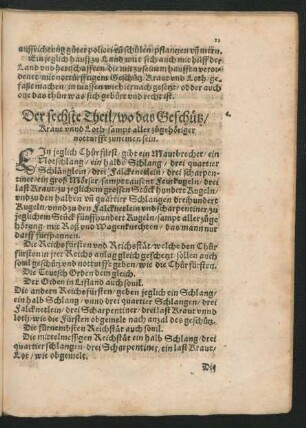 auffrichtūg gůter policei zů schůlen/pflantzen vñ mern.
Ein jeglich hauß zu Land
Land vnd herrschafften die mit
Der sechste Theil/wo das Geschütz/
Kraut vnnd Loth sampt aller zůgehöriger
notturfft zunemen sein.
EIn jeglich Chůrfürst gibt ein Maurbrecher/ein
Notschlang/ein halbe Schlang/drei quartier
Schlänglein/drei Falckenetlein/drei scharpen-
tiner/ein groß Mörser/sampt außer Feurkugeln/drei
last Kraut/zu jeglichem grossen Stück hundert Kugeln
vnd zu den halben vnd quartier Schlangen dreihundert
Kugeln/vnnd zu den Falcknetlein vnd scharpentiner/zu
jeglichem Stück fünffhundert Kugeln/sampt aller zůge
hörung/mit Roß vnd Wagenknechten/das man nur
darff fürspannen.
Die Reichsfürsten vnd Reichstät/welche den Chůr
fürsten in jrer Reichs anlag gleich geschetzt/sollen auch
souil geschütz/vnd notturfft geben/wie die Chůrfürsten.
Die Teutsch Orden dem gleich.
Der Orden in Lifland auch souil.
Die andern Reichsfürsten/geben jeglich ein Schlang/
ein halb Schlang/vnnd drei quartier Schlangen/drei
Falcknetlein/drei Scharpentiner/drei last Kraut vnnd
loth/wie die Fürsten obgemelt nach anzal des geschütz.
Die fürnembsten Reichstät auch souil.
Die mittelmessigen Reichstät ein halb Schlang/drei
quartier schlangen/drei Scharpentiner/ein last Kraut/
Lot/wie obgemelt.